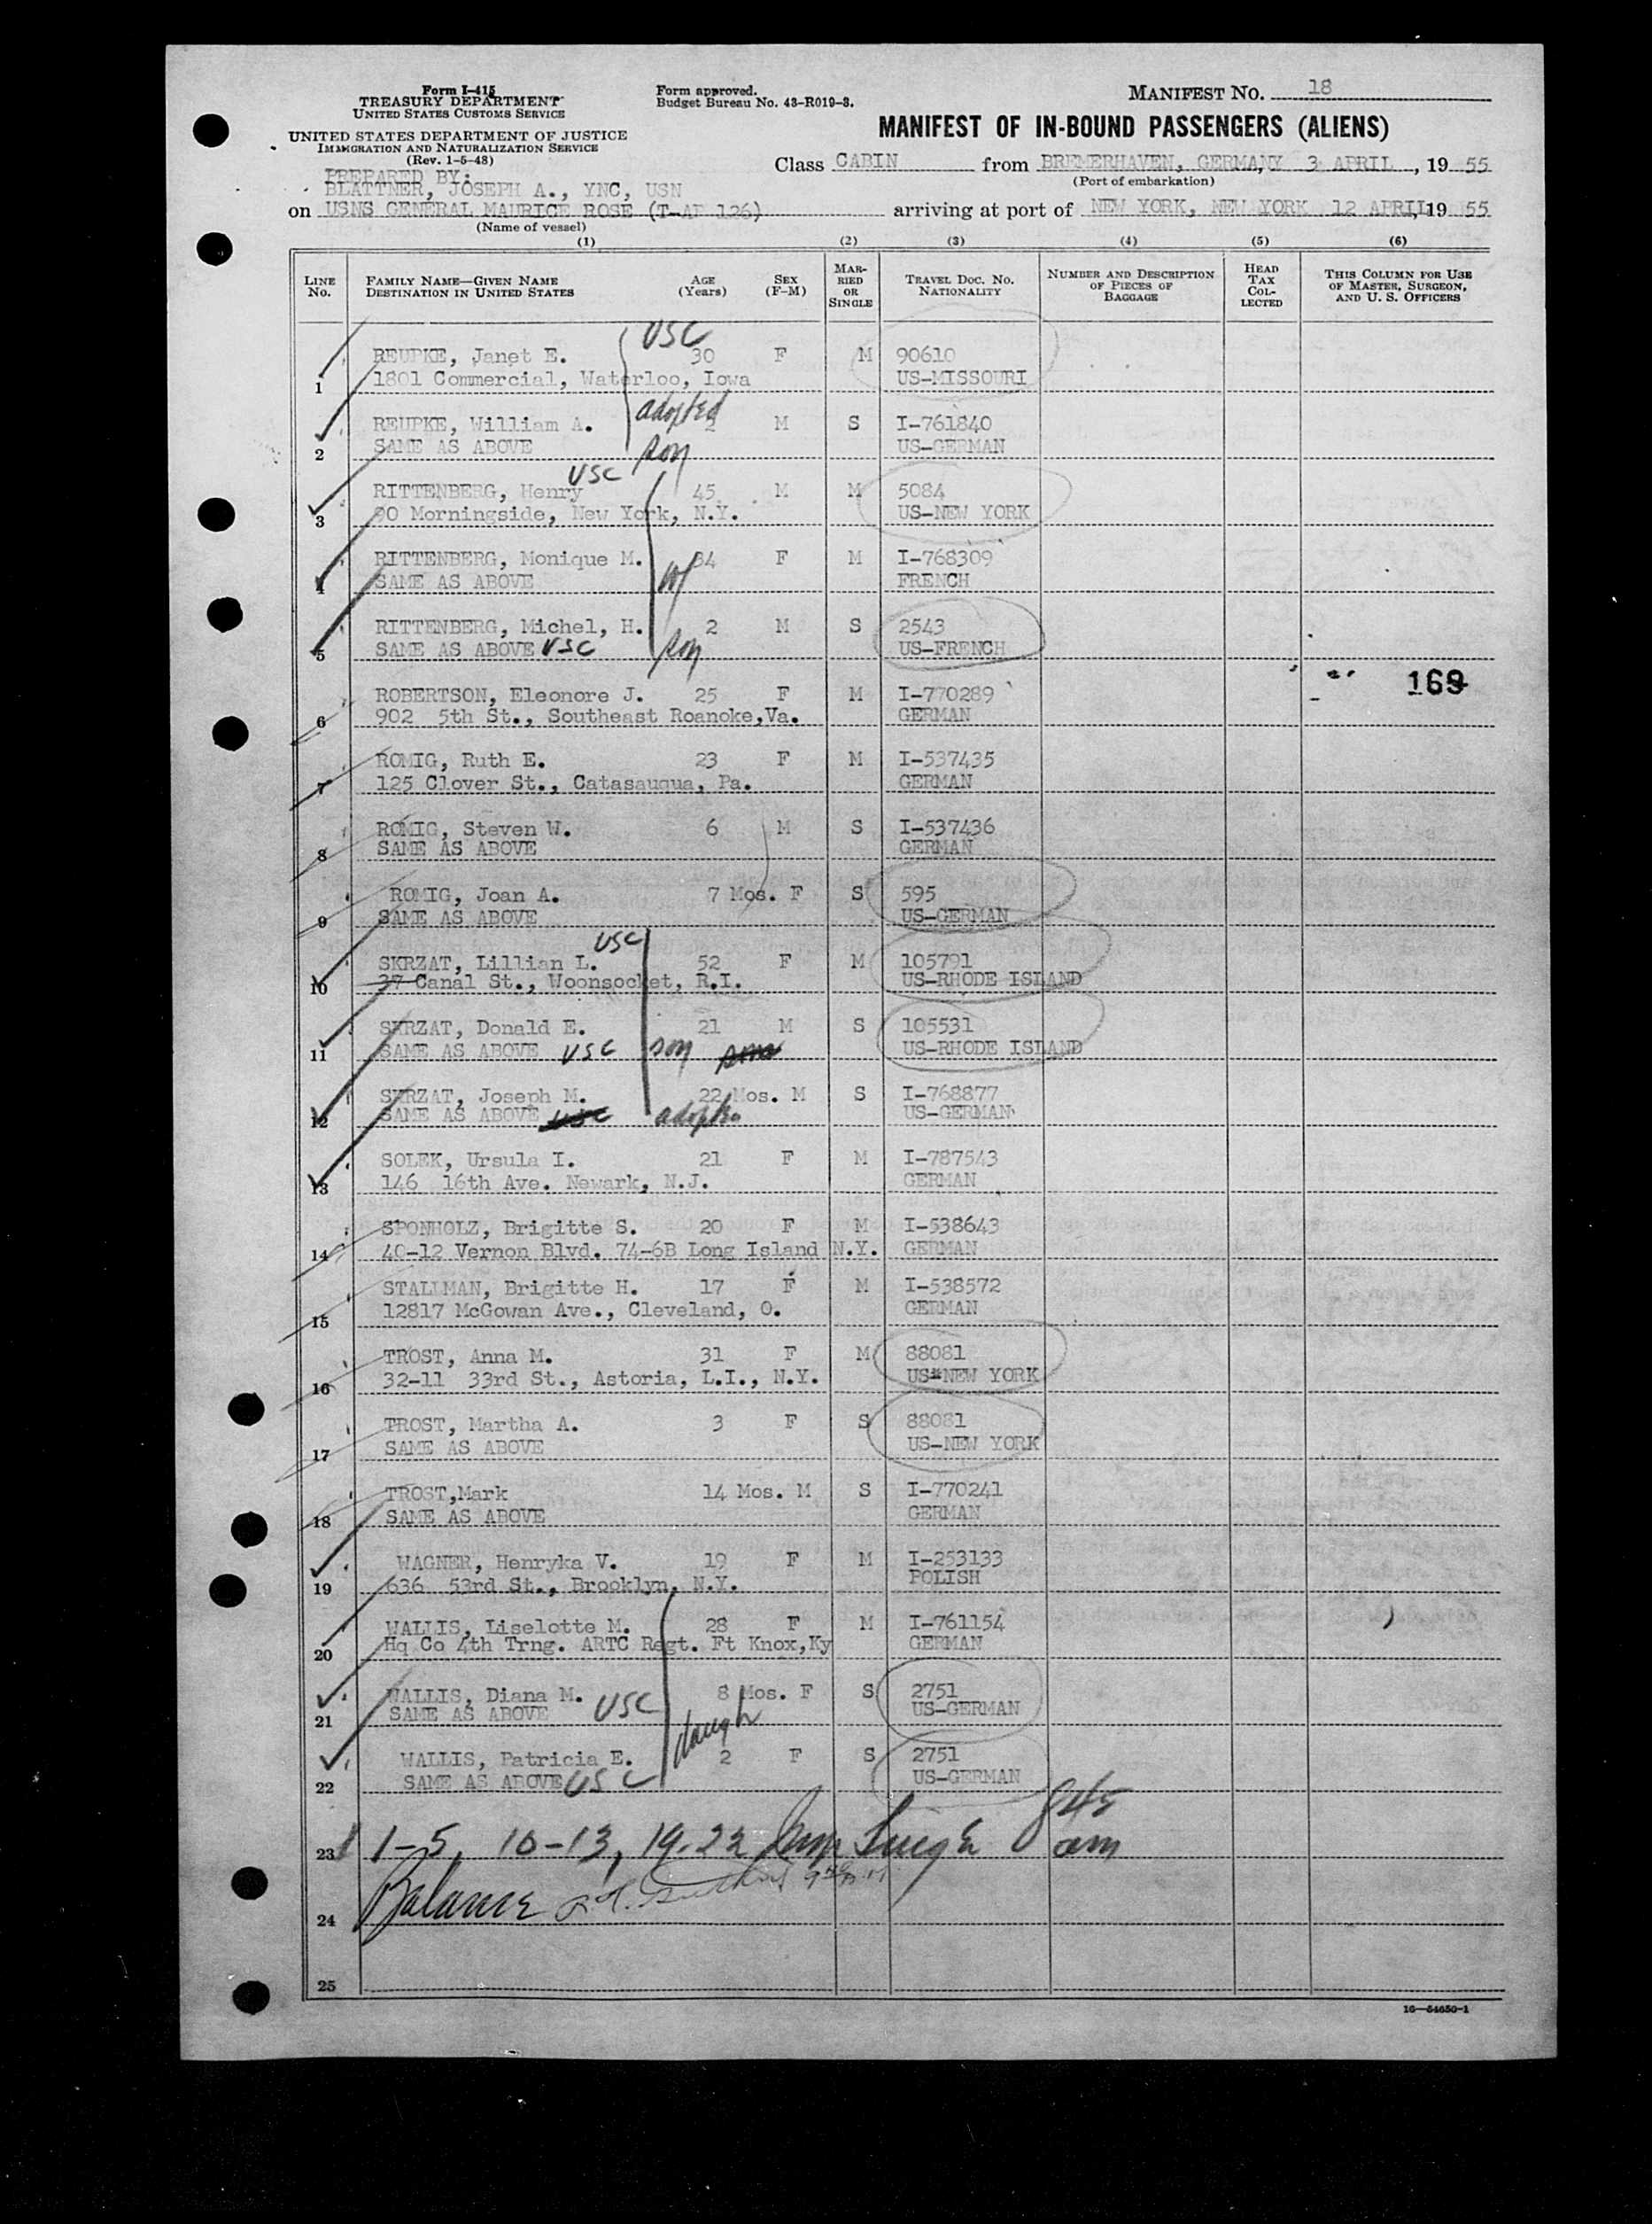 Form I-415
TREASURY DEPARTMENT
UNITED STATES CUSTOMS SERVICE
UNITED STATES DEPARTMENT OF JUSTICE
IMMIGRATION AND NATURALIZATION SERVICE
(Rev. 1-5-48)
Form approved.
Budget Bureau No. 43-R019-3.
MANIFEST NO. 18
MANIFEST OF IN-BOUND PASSENGERS (ALIENS)
Class CABIN from BREMERHAVEN, GERMANY, 3 APRIL, 19 55
(Port of embarkation)
PREPARED BY:
BLATTNER, JOSEPH A., YNC, USN
on USNS GENERAL MAURICE ROSE (T-AP 126) arriving at port of NEW YORK, NEW YORK 12 APRIL 19 55
(Name of vessel)
(1) (2) (3) (4) (5) (6)
LINE NO. FAMILY NAME—GIVEN NAME DESTINATION IN UNITED STATES AGE (Years) SEX (F-M) MARRIED OR SINGLE TRAVEL DOC. NO. NATIONALITY NUMBER AND DESCRIPTION OF PIECES OF BAGGAGE HEAD TAX COLLECTED THIS COLUMN FOR USE OF MASTER, SURGEON, AND U. S. OFFICERS
USC
REUPKE, Janet E. 30 F M 90610
1 1801 Commercial, Waterloo, Iowa US-MISSOURI
adopted
REUPKE, William A. 2 M S I-761840
2 SAME AS ABOVE son US-GERMAN
USC
RITTENBERG, Henry 45 M M 5084
3 90 Morningside, New York, N.Y. US-NEW YORK
RITTENBERG, Monique M. 34 F M I-768309
4 SAME AS ABOVE wf FRENCH
RITTENBERG, Michel, H. 2 M S 2543
5 SAME AS ABOVE USC son US-FRENCH
169
ROBERTSON, Eleonore J. 25 F M I-770289
6 902 5th St., Southeast Roanoke,Va. GERMAN
ROMIG, Ruth E. 23 F M I-537435
7 125 Clover St., Catasauqua, Pa. GERMAN
ROMIG, Steven W. 6 M S I-537436
8 SAME AS ABOVE GERMAN
ROMIG, Joan A. 7 Mos. F S 595
9 SAME AS ABOVE US-GERMAN
USC
SKRZAT, Lillian L. 52 F M 105791
10 37 Canal St., Woonsocket, R.I. US-RHODE ISLAND
SKRZAT, Donald E. 21 M S 105531
11 SAME AS ABOVE USC son son US-RHODE ISLAND
SKRZAT, Joseph M. 22 Mos. M S I-768877
12 SAME AS ABOVE USC US-GERMAN
SOLEK, Ursula I. 21 F M I-787543
13 146 16th Ave. Newark, N.J. GERMAN
SPONHOLZ, Brigitte S. 20 F M I-538643
14 40-12 Vernon Blvd. 74-6B Long Island N.Y. GERMAN
STALLMAN, Brigitte H. 17 F M I-538572
15 12817 McGowan Ave., Cleveland, O. GERMAN
TROST, Anna M. 31 F M 88081
16 32-11 33rd St., Astoria, L.I., N.Y. US-NEW YORK
TROST, Martha A. 3 F S 88081
17 SAME AS ABOVE US-NEW YORK
TROST,Mark 14 Mos. M S I-770241
18 SAME AS ABOVE GERMAN
WAGNER, Henryka V. 19 F M I-253133
19 636 53rd St., Brooklyn, N.Y. POLISH
WALLIS, Liselotte M. 28 F M I-761154
20 Hq Co 4th Trng. ARTC Regt. Ft Knox,Ky GERMAN
WALLIS, Diana M. USC 8 Mos. F S 2751
21 SAME AS ABOVE US-GERMAN
daugh
WALLIS, Patricia E. 2 F S 2751
22 SAME AS ABOVE USC US-GERMAN
845
23 1-5, 10-13, 19-22 am
Balance
24
25
16—54650-1